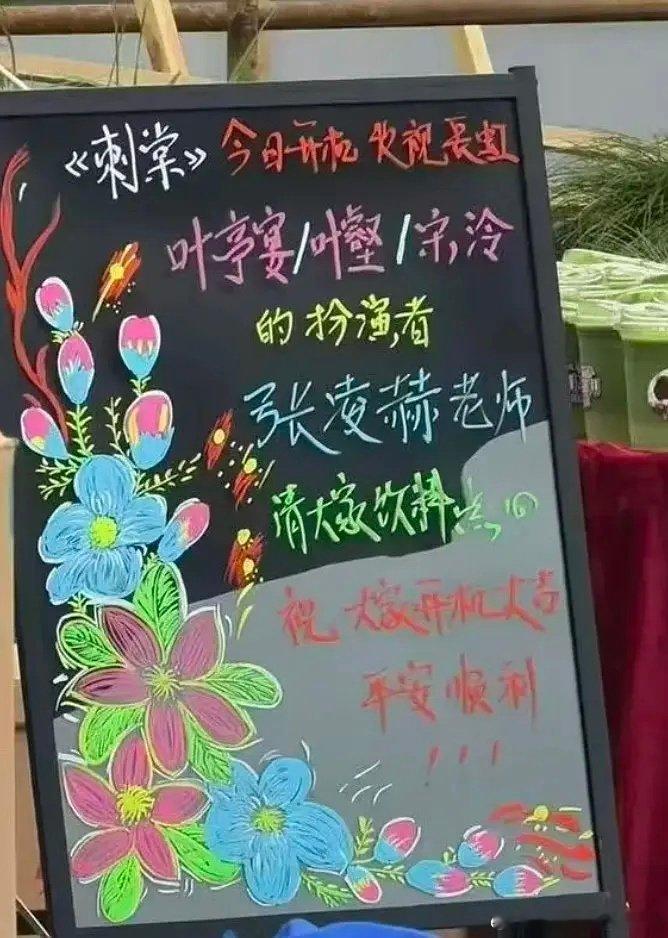 《刺棠》今日开机 收视长虹
叶亭宴/叶壑/宋泠
的扮演者
张凌赫老师
请大家饮料点心
祝大家开机大吉
平安顺利
!!!